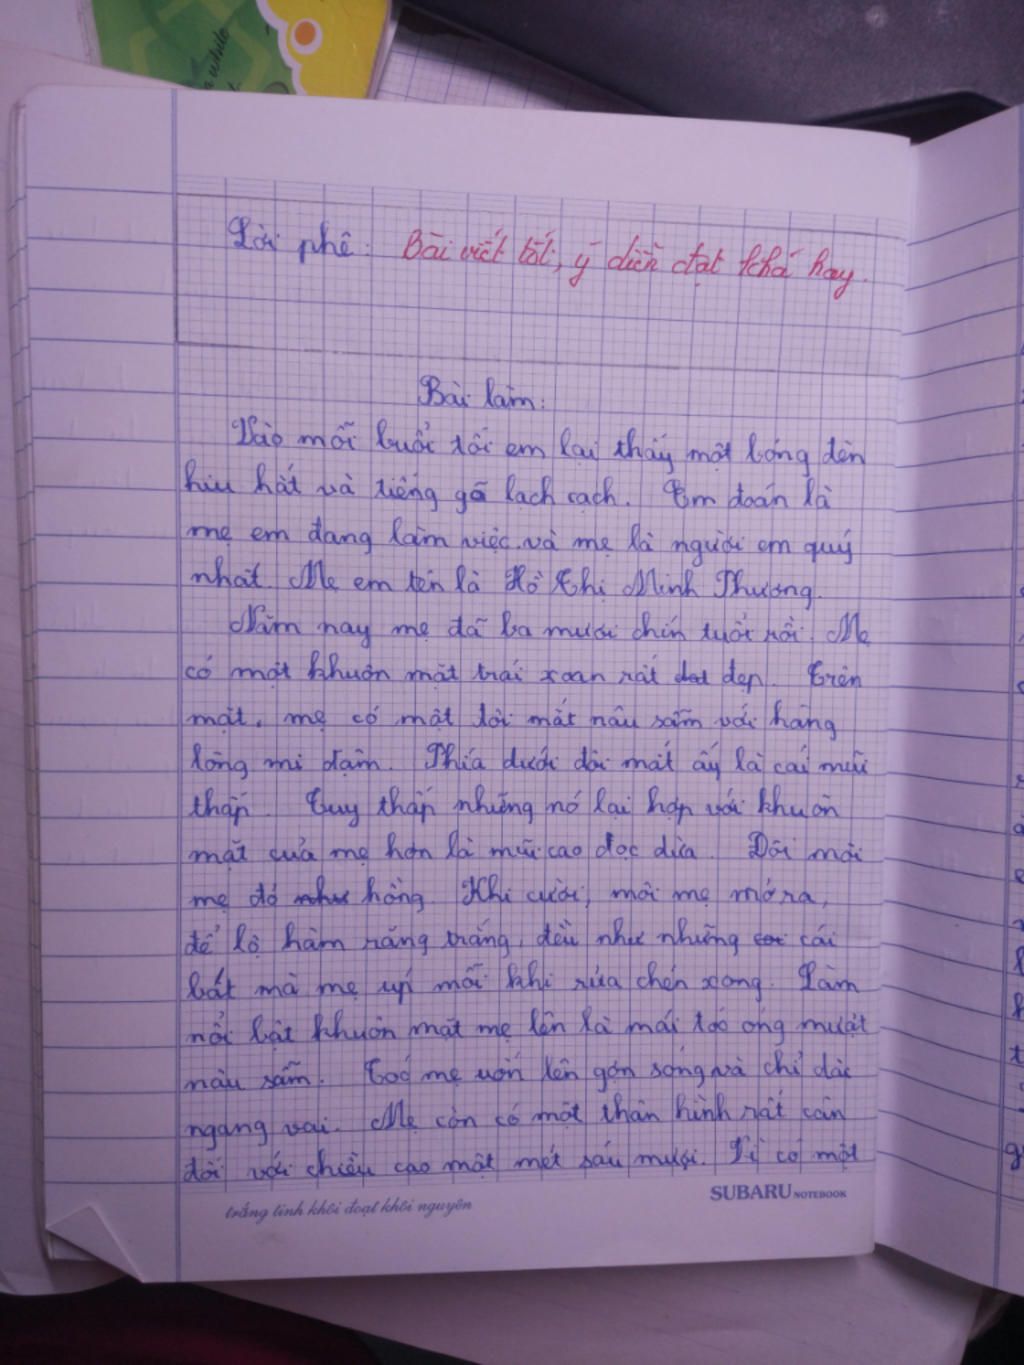 a white
Lời phê: Bài viết tốt, ý diễn đạt khá hay.
Bài làm:
Vào mỗi buổi tối em lại thấy một bóng đèn
hiu hắt và tiếng gõ lạch cạch. Em đoán là
mẹ em đang làm việc và mẹ là người em quý
nhất. Mẹ em tên là Hồ Thị Minh Thương.
Năm nay mẹ đã ba mươi chín tuổi rồi. Mẹ
có một khuôn mặt trái xoan rất đẹp. Trên
mặt, mẹ có một đôi mắt nâu sẫm với hàng
lông mi đậm. Phía dưới đôi mắt ấy là cái mũi
thấp. Tuy thấp nhưng nó lại hợp với khuôn
mặt của mẹ hơn là mũi cao dọc dừa. Đôi môi
mẹ đỏ hồng. Khi cười, môi mẹ mở ra,
để lộ hàm răng trắng, đều như những cái
bát mà mẹ úp mỗi khi rửa chén xong. Làm
nổi bật khuôn mặt mẹ lên là mái tóc óng mượt
nâu sẫm. Tóc mẹ uốn lên gợn sóng và chỉ dài
ngang vai. Mẹ còn có một thân hình rất cân
đối với chiều cao một mét sáu mươi. Vì có một
trắng tinh khôi đoạt khôi nguyên
SUBARU NOTEBOOK